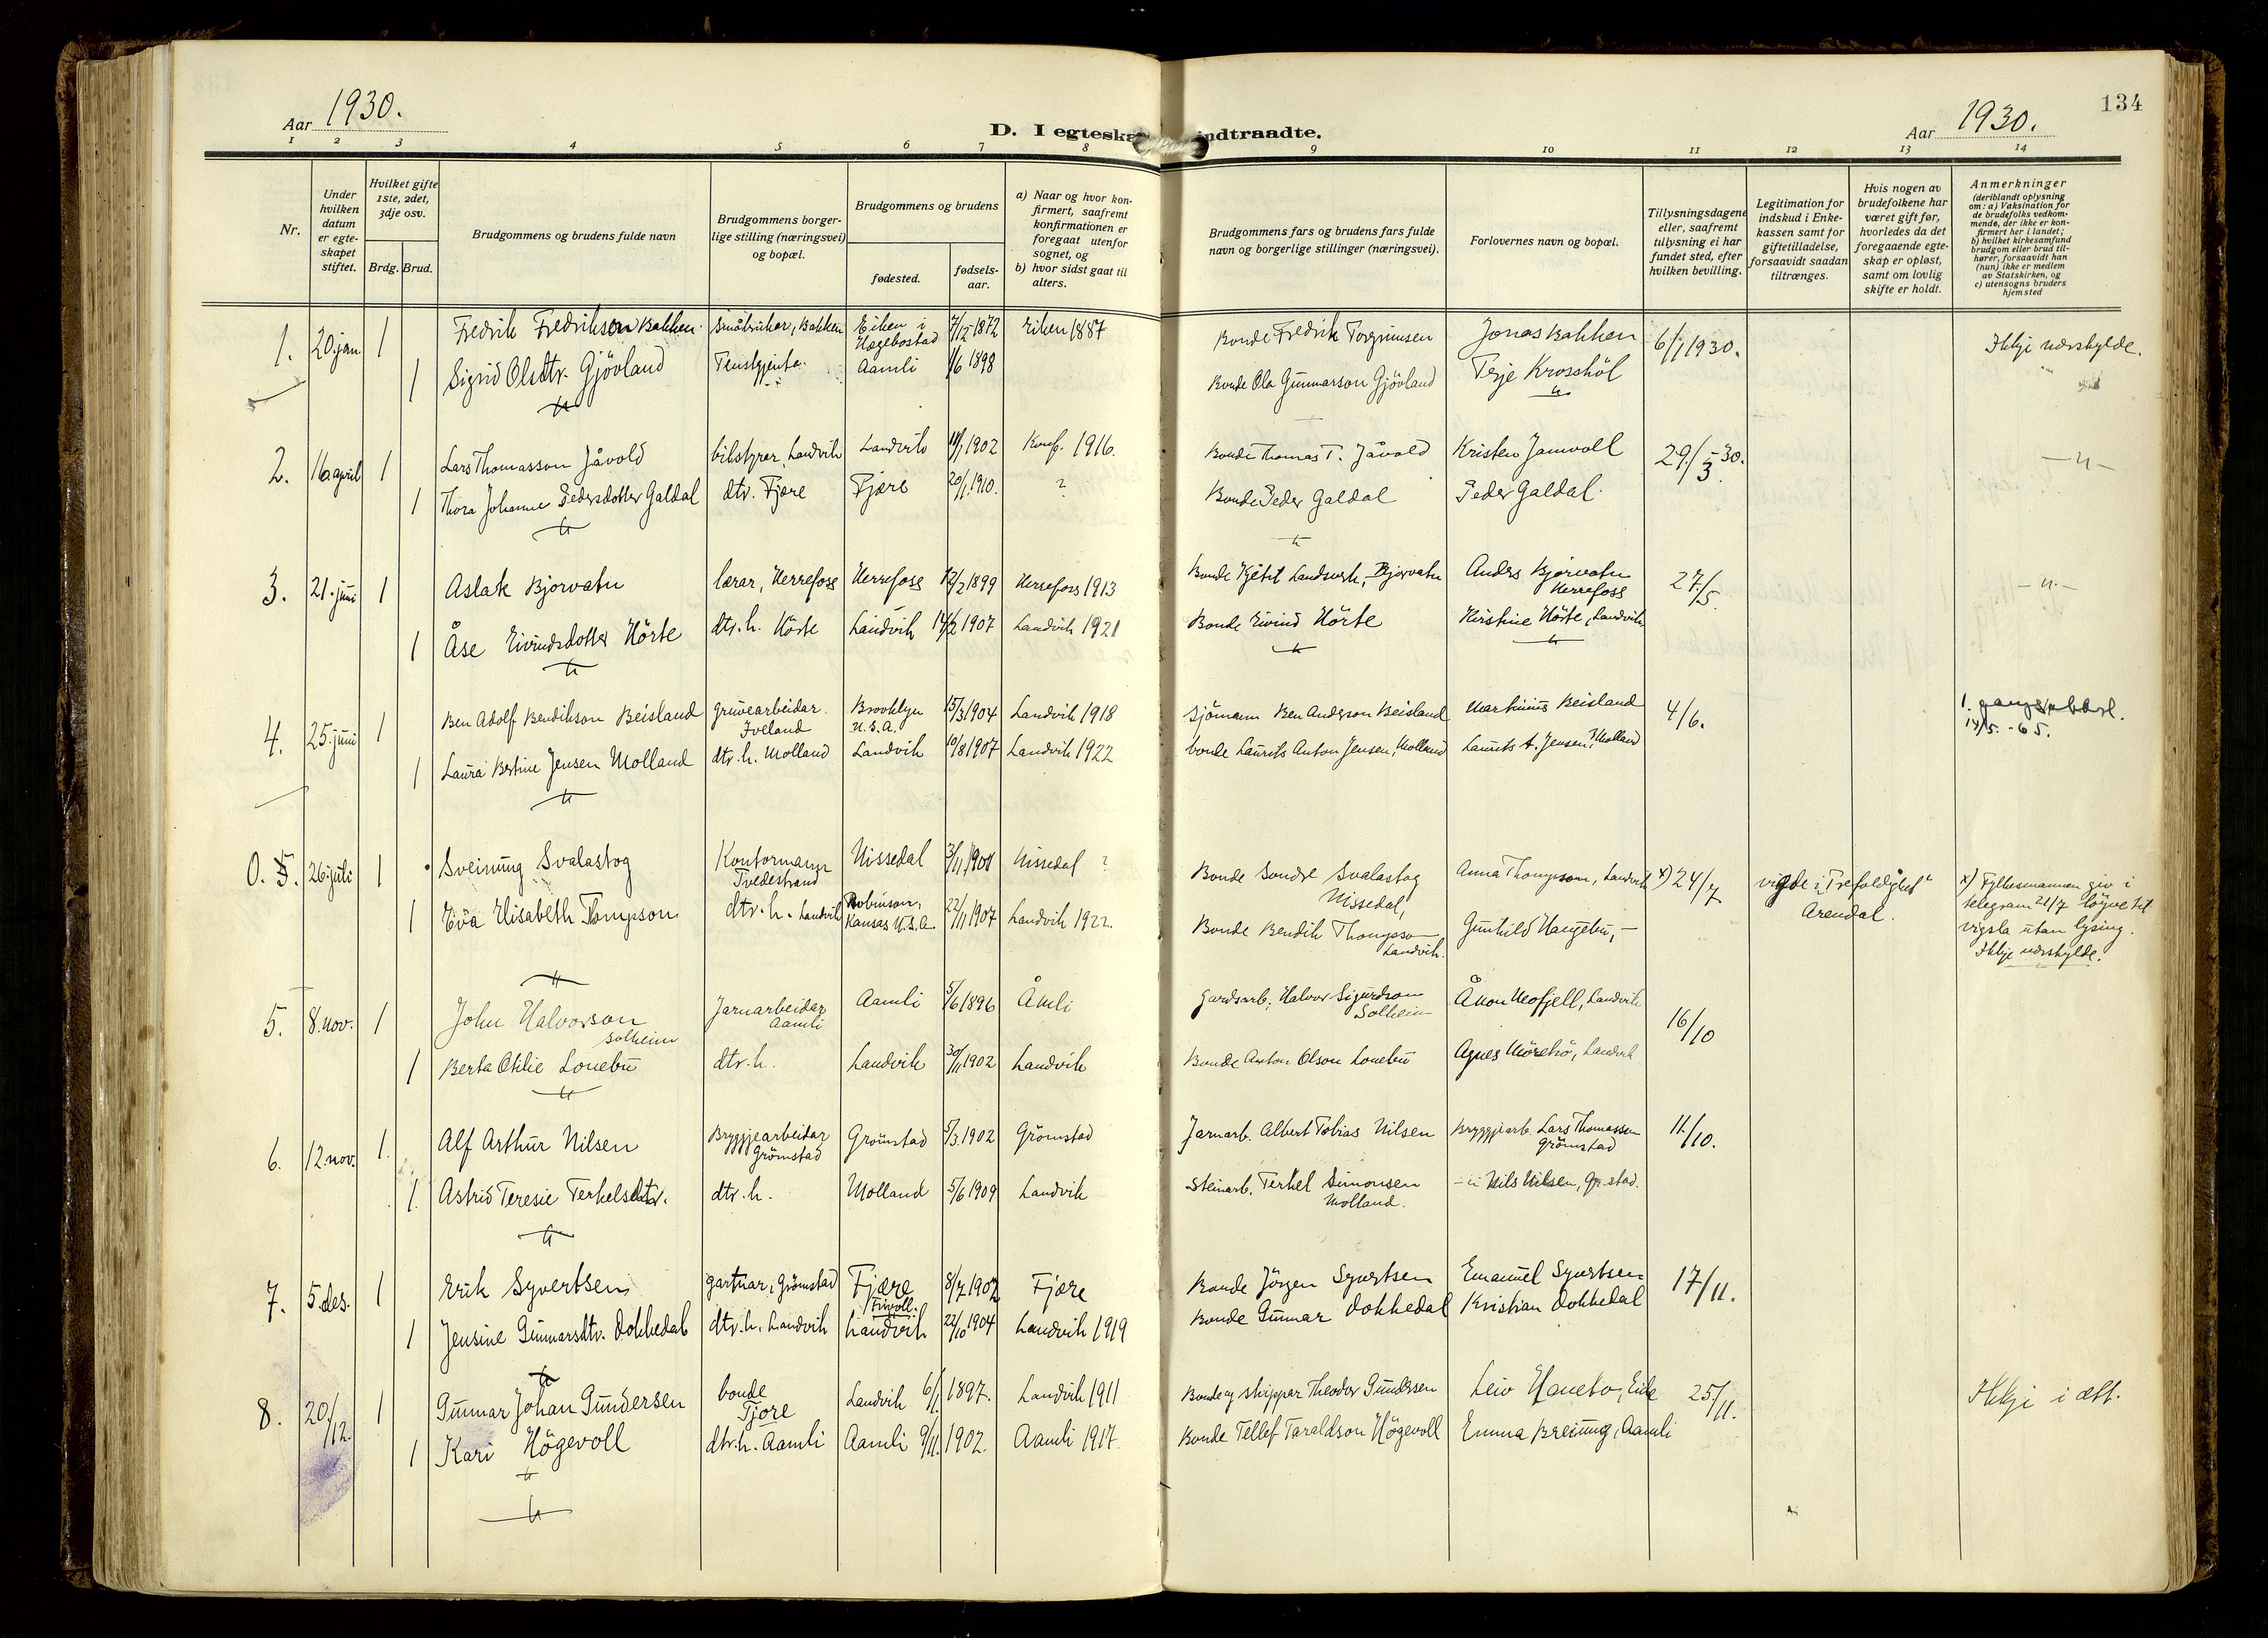 134
Aar 1930.
D. I egteskap indtraadte.
Aar 1930.
1 2 3 4 5 6 7 8 9 10 11 12 13 14
Nr.
Under hvilken datum er egteskapet stiftet.
Hvilket gifte 1ste, 2det, 3dje osv.
Brdg. Brud.
Brudgommens og brudens fulde navn
Brudgommens borgerlige stilling (næringsvei) og bopæl.
Brudgommens og brudens
fødested.
fødselsaar.
a) Naar og hvor konfirmert, saafremt konfirmationen er foregaat utenfor sognet, og
b) hvor sidst gaat til alters.
Brudgommens fars og brudens fars fulde navn og borgerlige stillinger (næringsvei).
Forlovernes navn og bopæl.
Tillysningsdagene eller, saafremt tillysning ei har fundet sted, efter hvilken bevilling.
Legitimation for indskud i Enkekassen samt for giftetilladelse, forsaavidt saadan tiltrænges.
Hvis nogen av brudefolkene har været gift før, hvorledes da det foregaaende egteskap er opløst, samt om lovlig skifte er holdt.
Anmerkninger
(deriblandt oplysning om: a) Vaksination for de brudefolks vedkommende, der ikke er konfirmert her i landet;
b) hvilket kirkesamfund brudgom eller brud tilhører, forsaavidt han (hun) ikke er medlem av Statskirken, og
c) utensogns bruders hjemsted
1. 20. jan 1 Fredrik Fredrikson Bakken. Småbruker, Bakken Eiken i Hægebostad 7/12 1872 Eiken 1887 Bonde Fredrik Torgrimsen Jonas Bakken 6/1 1930. Ikkje nærskylde.
1 Sigrid Olsdtr. Gjövland Tenstgjenta Aamli 1/6 1898 Bonde Ola Gunnarson Gjövland Terje Kroschöl
2. 16 april 1 Lars Thomasson Jåvold bilstyrer, Landvik Landvik 11/1 1902 Konf. 1916. Bonde Thomas T. Jåvold Kristen Jamvoll 29/3 -30. -"-
1 Thora Johanne Pedersdotter Galdal dtr. Fjære Fjære 20/1 1910. ? Bonde Peder Galdal Peder Galdal.
3. 21. juni 1 Aslak Bjorvatn lærar, Herrefoss Herrefoss 12/2 1899 Herrefoss 1913 Bonde Kjetil Landsverk, Bjorvatn Anders Bjorvatn Herrefoss 27/5. -"-
1 Åse Eivindsdotter Hörte dtr. h. Hörte Landvik 14/2 1907 Landvik 1921 Bonde Eivind Hörte Kirstine Hörte, Landvik
4. 25. juni 1 Ben Adolf Bendikson Beisland gruvearbeidar Iveland Brooklyn U.S.A. 15/3 1904 Landvik 1918 Sjömann Ben Anderson Beisland Martinius Beisland 4/6. 14/5. -65.
1 Laura Bertine Jensen Molland dtr. h. Molland Landvik 10/8 1907 Landvik 1922 bonde Laurits Anton Jensen, Molland Laurits A. Jensen, Molland
0. 5. 26 juli 1 Sveinung Svalastog Kontormann Tvedestrand Nissedal 3/11 1901 Nissedal ? Bonde Sondre Svalastog Nissedal, Anna Thompson, Landvik x) 24/7 vigde i "Trefoldighet" Arendal. x) Fylkesmannen giv i telegram 21/7 löyve til vigsla utan lysing. Ikkje nærskylde.
1 Eva Elisabeth Tompson dtr. h. Landvik Robinson, Kansas U.S.A. 22/11 1907 Landvik 1922. Bonde Bendik Thompson Landvik. Gunhild Haugebu, -
5. 8. nov. 1 John Halvorson Solheim Jarnarbeidar Aamli Aamli 5/6 1896 Åmli Gardsarb. Halvor Sigurdson Solheim Åmon Neofjell, Landvik 16/10
1 Berta Otilie Lonebu dtr. h. Landvik 30/11 1902 Landvik Bonde Anton Olson Lonebu Agnes Mörehö, Landvik
6. 12. nov. 1. Alf Arthur Nilsen Bryggjearbeidar Grömstad Grömstad 5/3. 1902 Grömstad Jarnarb. Albert Tobias Nilsen Bryggjearb. Lars Thomassen Grömstad 11/10.
1. Astrid Teresie Terkelsdtr. dtr. h. Molland 5/6 1909 Landvik Steinarb. Terkel Simonsen Molland. -"- Nils Nilsen, Gr.stad.
7. 5. des. 1 Erik Syvertsen gartnar, Grömstad Fjære Frivoll. 8/7 1902 Fjære Bonde Jörgen Syvertsen Emanuel Syvertsen 17/11.
1 Jensine Gunnarsdtr. Dokkedal dtr. h. Landvik Landvik 22/10 1904 Landvik 1919 Bonde Gunnar Dokkedal Kristian Dokkedal
8. 20/12. 1 Gunnar Johan Gundersen bonde Fjöre Landvik 6/1 1897. Landvik 1911 Bonde og skipper Theodor Gundersen Leiv Haneto, Eide 25/11. Ikkje i ætt.
1 Kari Högevoll dtr. h. Aamli Aamli 9/11 1902. Aamli 1917. Bonde Tellef Taraldson Högevoll Emma Breiung, Aamli